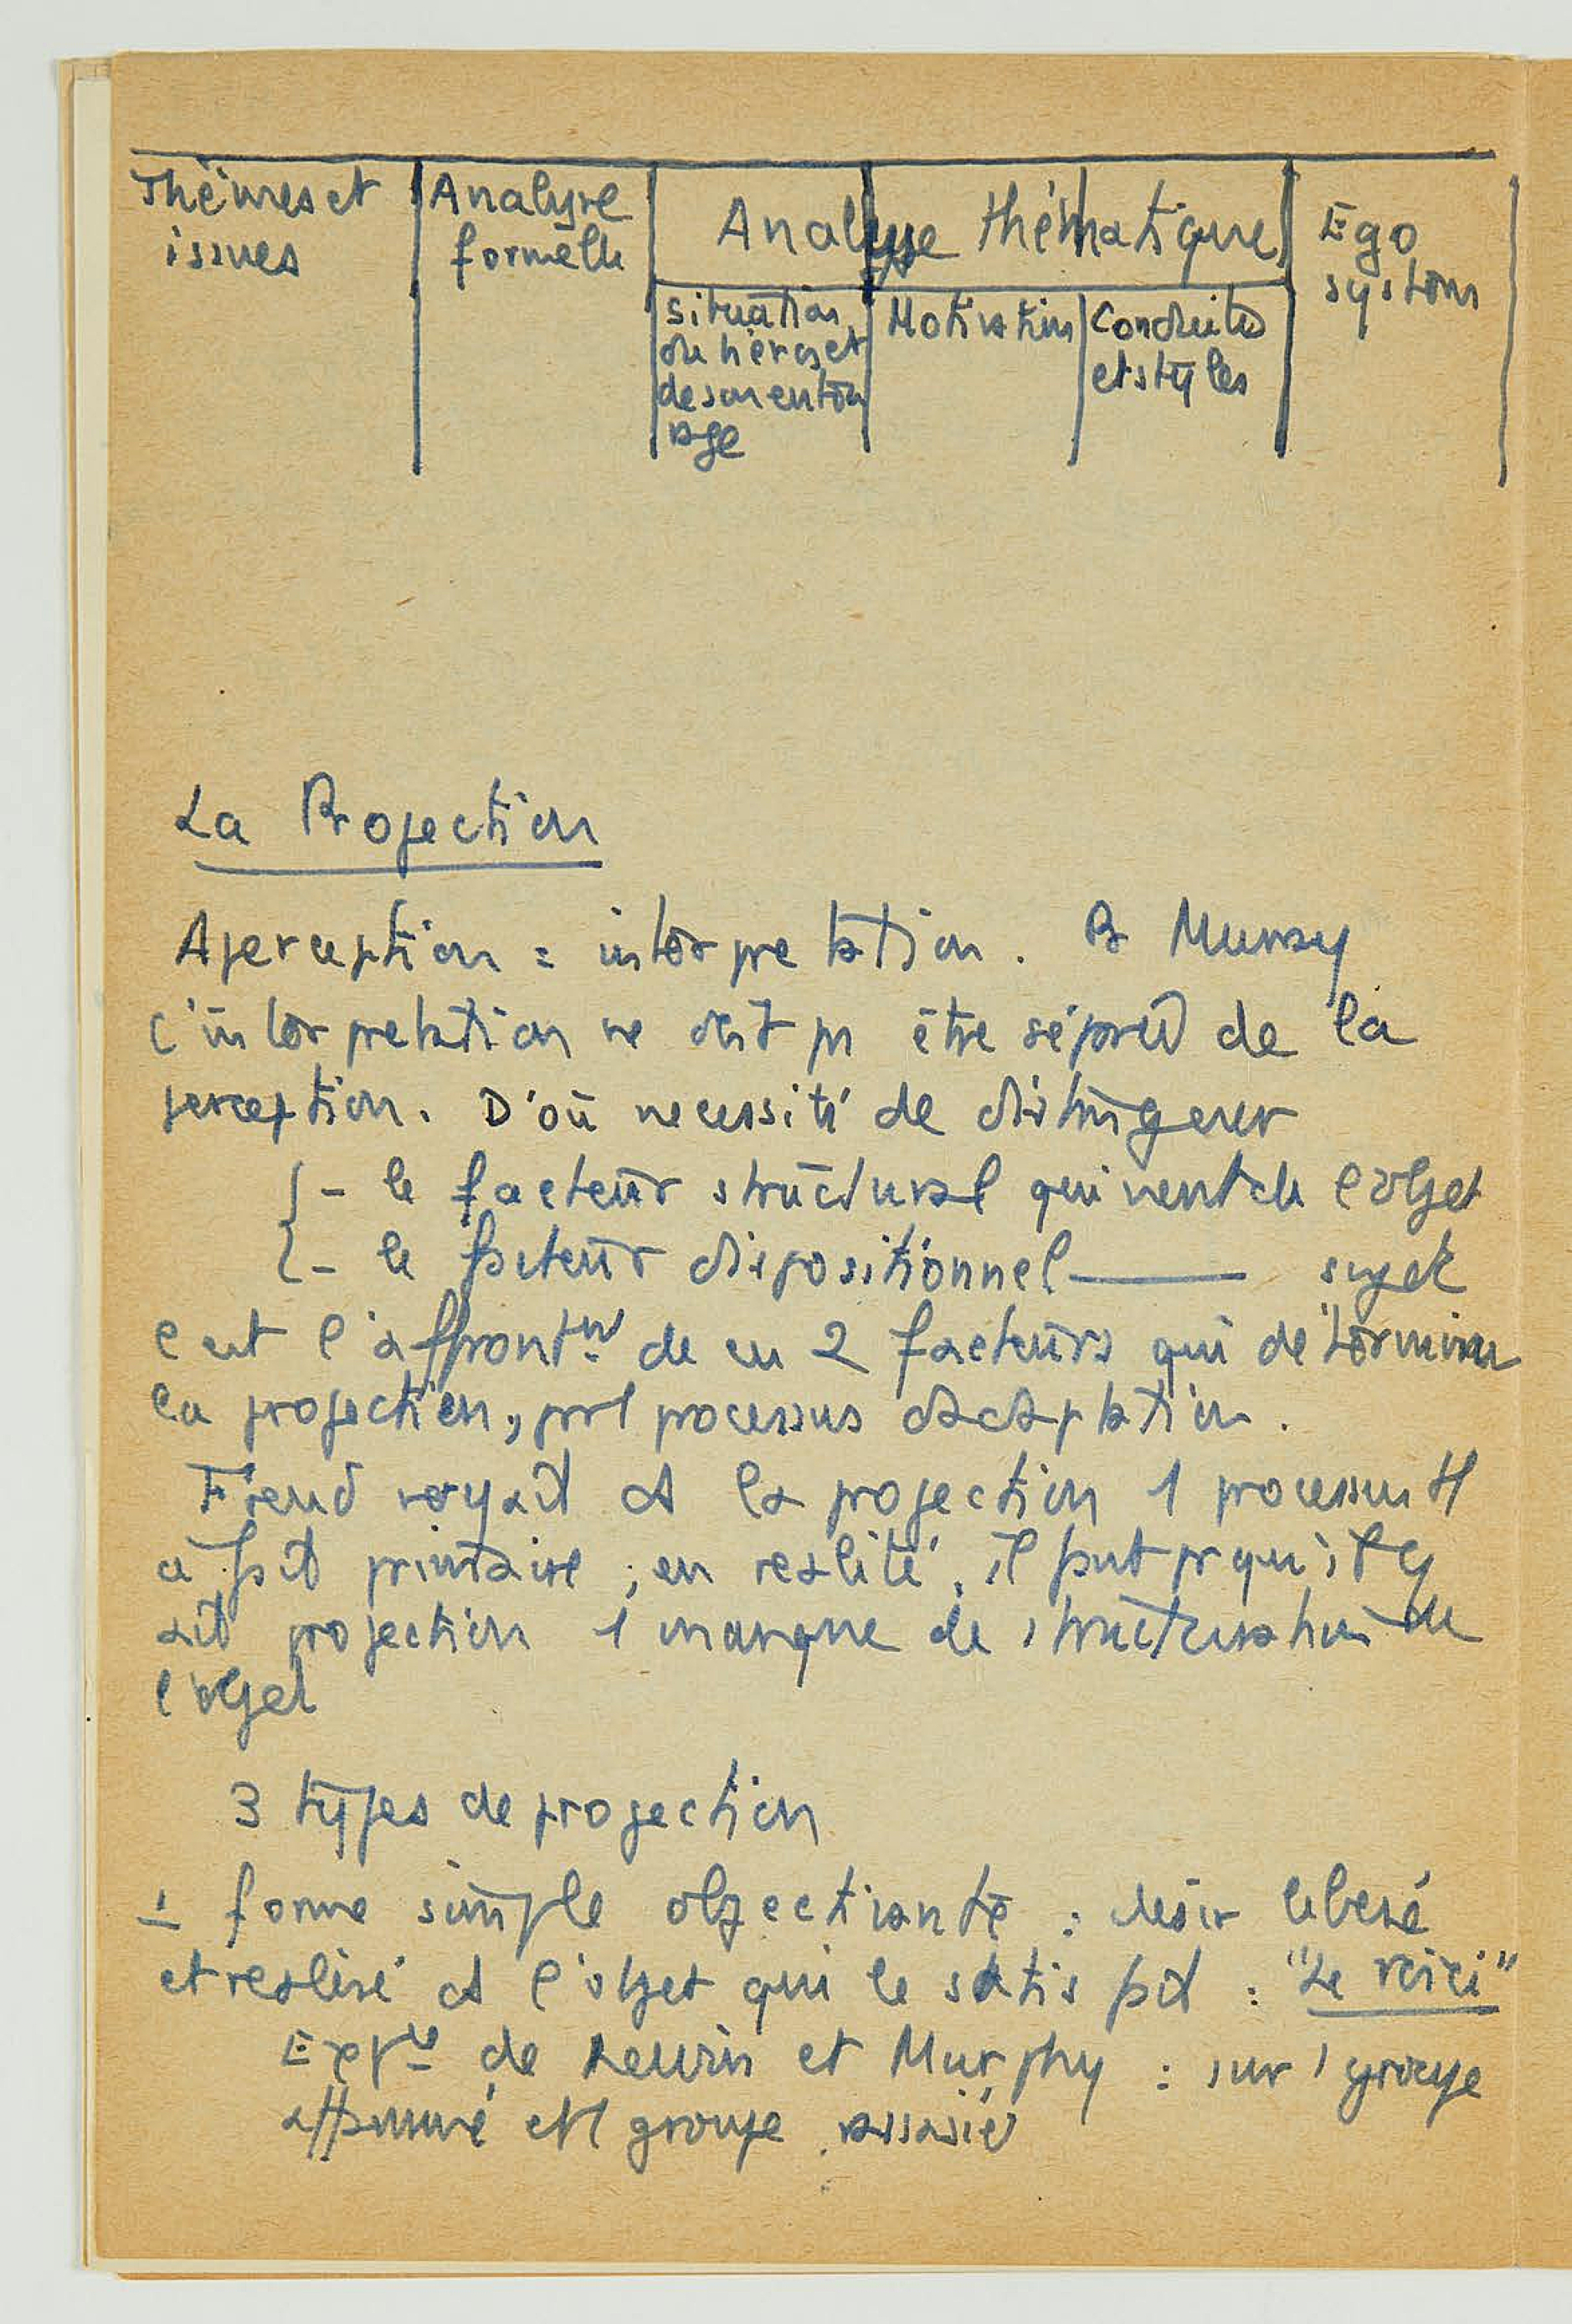 Thèmes et issues
Analyse formelle
Analyse thématique
Ego system
situation du héros et de son entourage
Motivation
Conduites et styles
La Projection
Aperception = interprétation. Pr Murray
l'interprétation ne doit pas être séparée de la
perception. D'où nécessité de distinguer
- le facteur structural qui vient de l'objet
- le facteur dispositionnel ——— sujet
C'est l'affrontt de ces 2 facteurs qui détermine
la projection, pr 1 processus d'adaptation.
Freud voyait ds la projection 1 processus tt
à fait primaire ; en réalité, il faut pr qu'il y
ait projection 1 manque de structuration de
l'objet
3 types de projection
1 forme simple objectivante : désir libéré
et réalisé ds l'objet qui le satisfait : "Le voici"
Expce de Lewin et Murphy : sur 1 groupe
affamé et 1 groupe rassasié